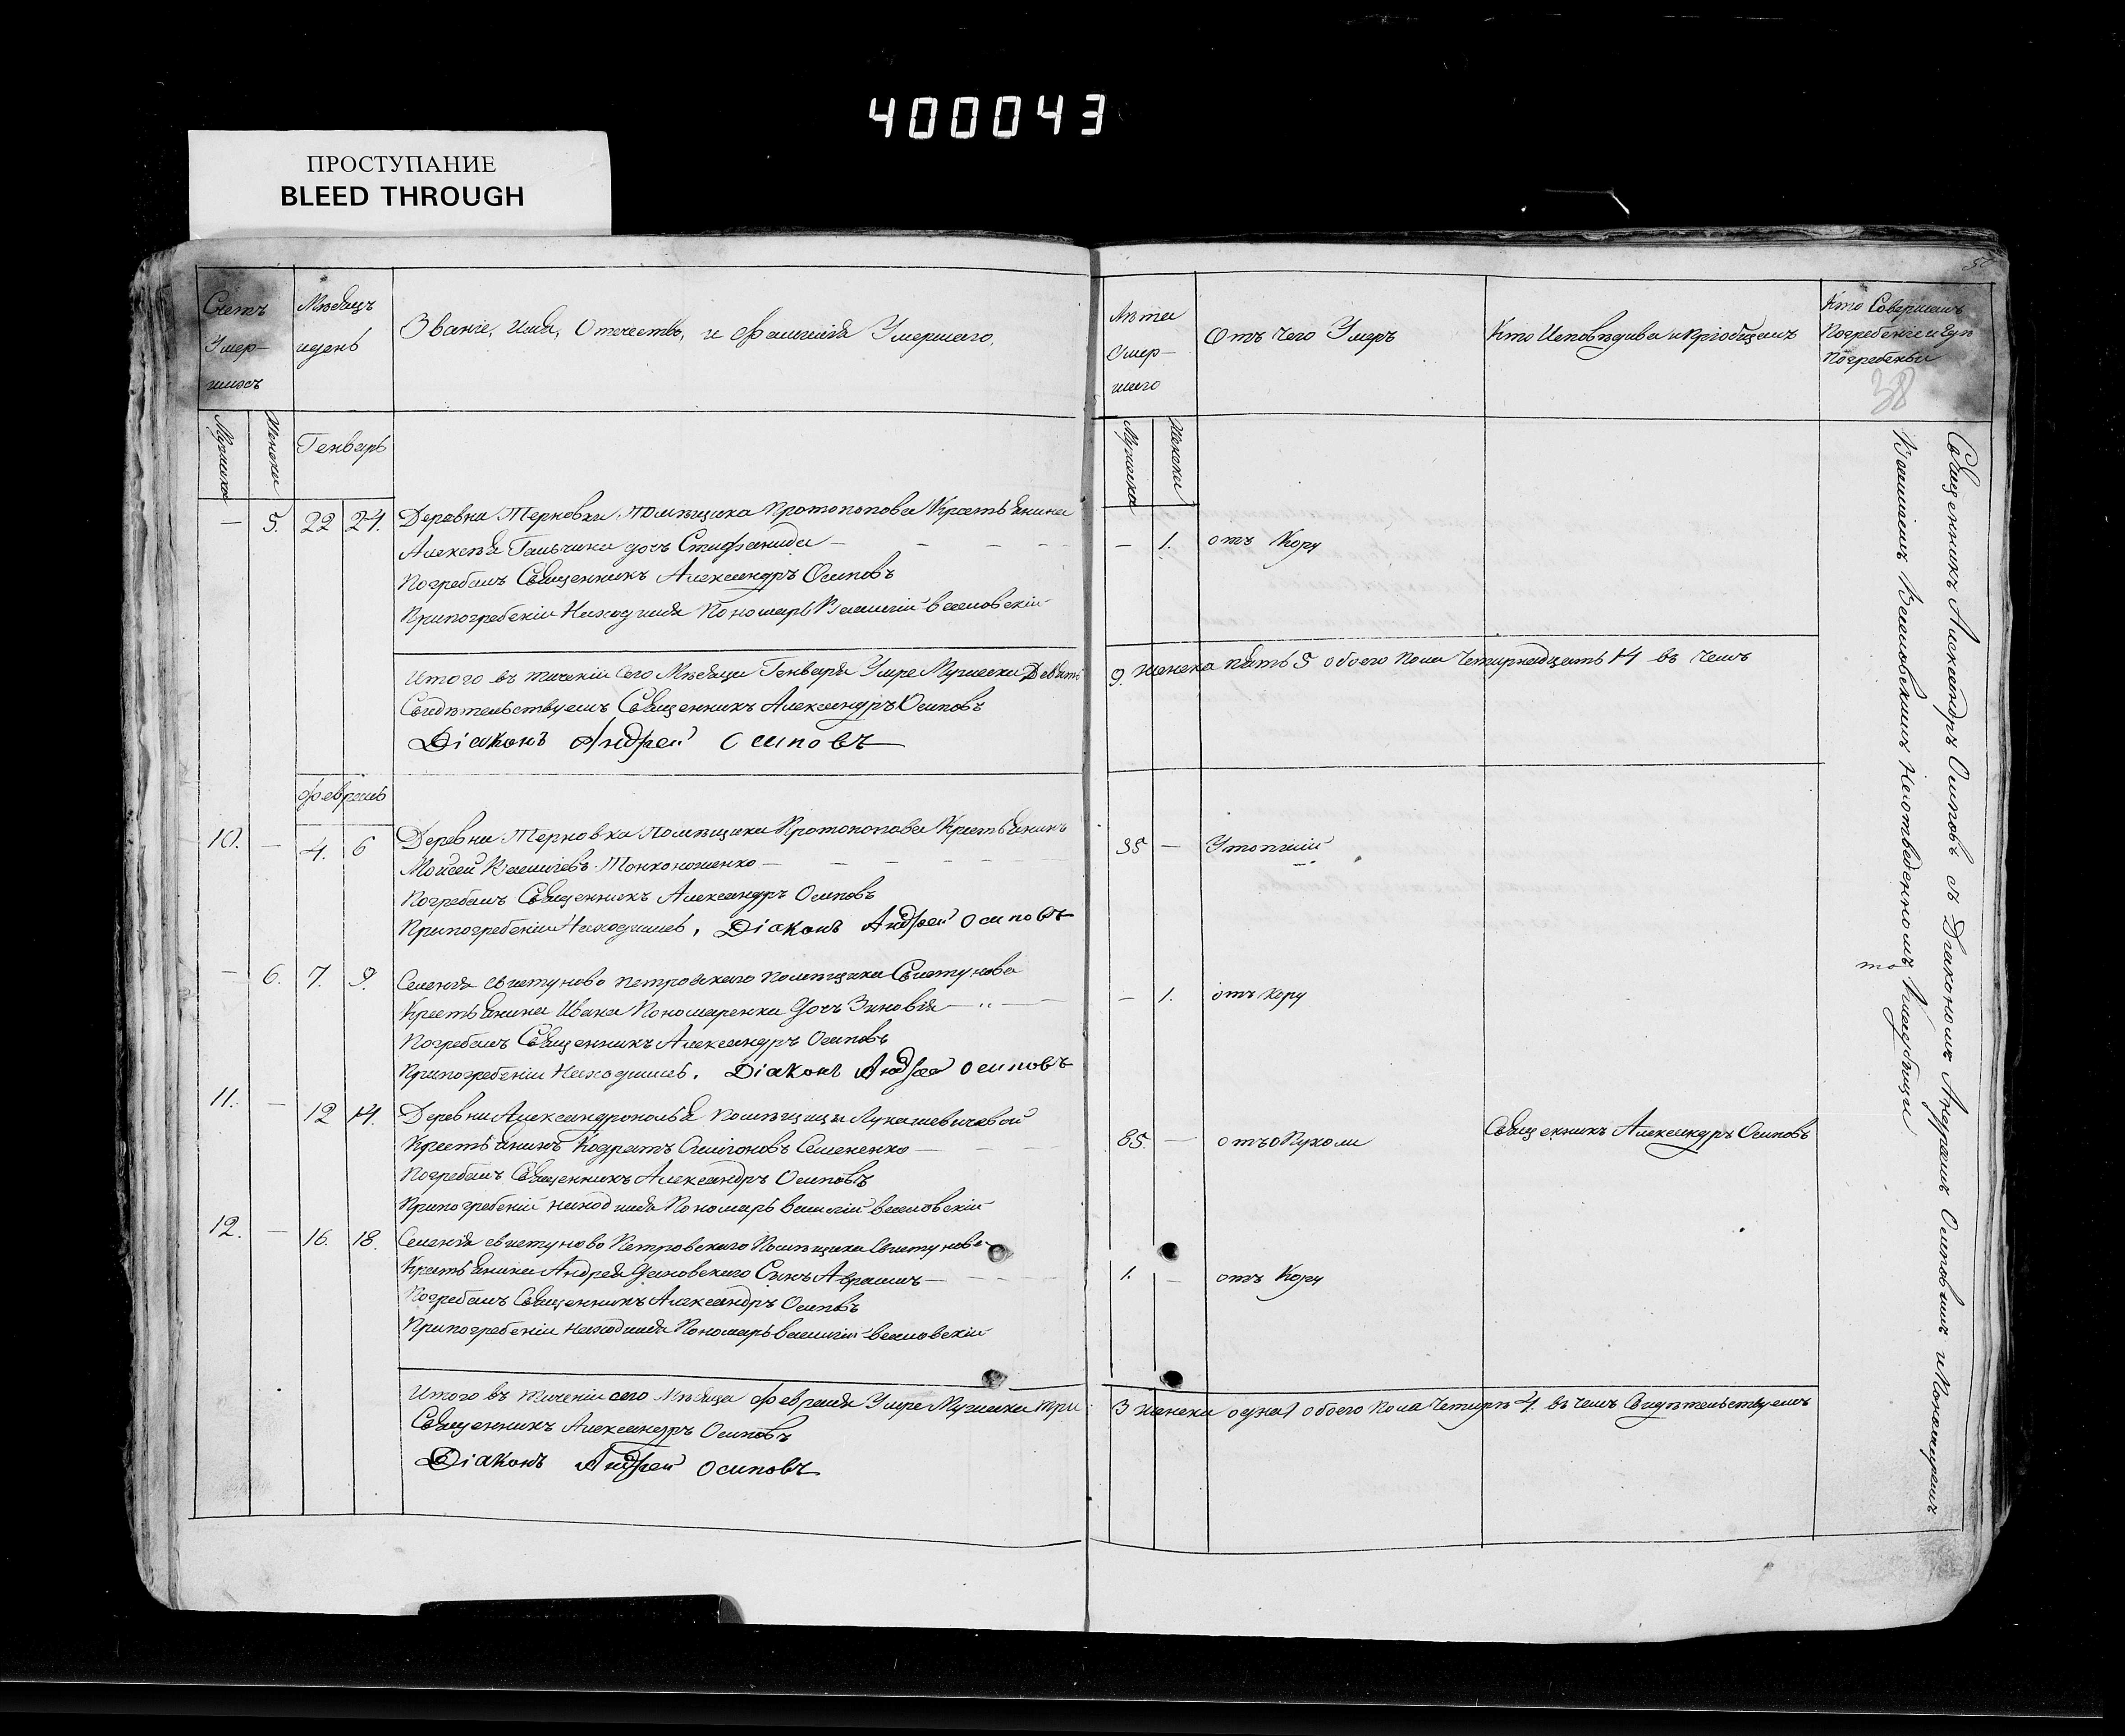 400043
ПРОСТУПАНИЕ
BLEED THROUGH
Счетъ Умер-шихъ
Мѣсяцъ и день
Званіе, Имя, Отечество, и Фамилія Умершаго,
Лѣта Умер-шаго
Отъ чего Умеръ
Кто Исповѣдива и Пріобщалъ
Кто Совершалъ Погребеніе и Гдѣ Погребены
38
Мужика
Женски
Генварь
Мужеска
Женски
— 5. 22 24. Деревна Терновки помѣщика Протопопова Крестьянина
Алексѣя Гальчика дочь Стифанида — 1. отъ Кору
Погребалъ Священникъ Александръ Осиповъ
При погребеніи Находился Пономарь Василій Веселовскій
Итого въ теченіи сего Мѣсяца Генваря Умре Мужеска Девять 9. женска пять 5 обоего пола Четирнадцать 14 въ чемъ
Свидѣтельствуемъ Священникъ Александръ Осиповъ
Діаконъ Андрей Осиповъ
Февраль
10. — 4. 6 Деревни Терновка Помѣщика Протопопова Крестьянинъ
Мойсей Василіевъ Тонконоженко — 35 — Утопшій
Погребалъ Священникъ Александръ Осиповъ
При погребеніи Находились, Діаконъ Андрей Осиповъ
— 6. 7. 9. Селенія Свистуново Петровскаго Помѣщика Свистунова
Крестьянина Ивана Пономаренка Дочь Зиновія — 1. отъ Кору
Погребалъ Священникъ Александръ Осиповъ
При погребеніи Находились. Діаконъ Андрей Осиповъ
11. — 12 14. Деревни Александрополья Помѣщици Лукашевичевой
Крестьянинъ Кодратъ Симоновъ Семененко — 85. — отъ опухоли Священникъ Александръ Осиповъ
Погребалъ Священникъ Александръ Осиповъ
При погребеній находился Пономарь Василій Веселовскій
12. — 16. 18. Селенія Свистуново Петровскаго Помѣщика Свистунова
Крестьянина Андрея Сына Аврамъ — 1. — отъ Кору
Погребалъ Священникъ Александръ Осиповъ
При погребеніи находился Пономарь Василій Веселовскій
Итого въ теченіи сего Мѣсяца Февраля Умре Мужеска три 3 женска одна 1 обоего пола Четире 4. въ чемъ Свидѣтельствуемъ
Священникъ Александръ Осиповъ
Діаконъ Андрей Осиповъ
Священникъ Александръ Осиповъ съ Диакономъ Андреемъ Осиповимъ и Пономаремъ
Василіемъ Веселовскимъ На отведенномъ Кладбищи